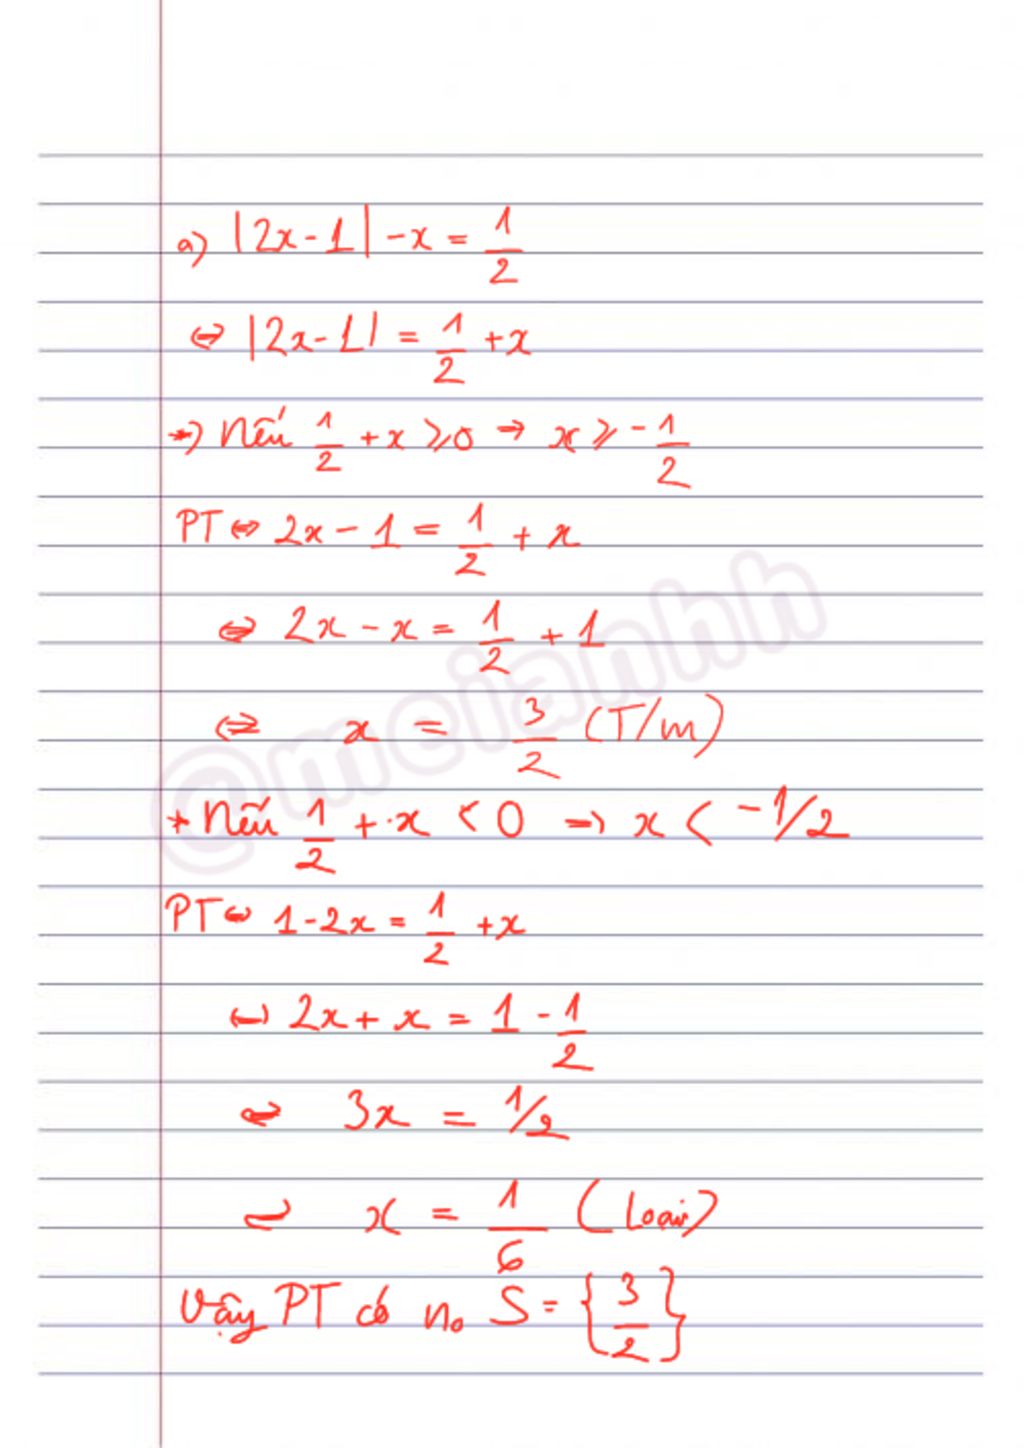 a) |2x-1| -x = 1/2
⇔ |2x-1| = 1/2 +x
+) Nếu 1/2 +x ≥0 → x ≥ -1/2
PT ⇔ 2x-1 = 1/2 + x
⇔ 2x-x = 1/2 + 1
⇔ x = 3/2 (T/m)
+ Nếu 1/2 + x < 0 => x < -1/2
PT ⇔ 1-2x = 1/2 +x
⇔ 2x+x = 1 - 1/2
⇔ 3x = 1/2
⇔ x = 1/6 (Loại)
Vậy PT có no S = {3/2}
@mcianhh